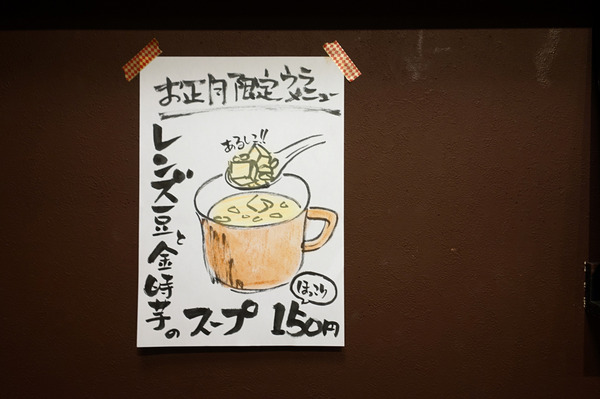 お正月限定ウラメニュー
レンズ豆と金時芋の
スープ 150円
ほっこり